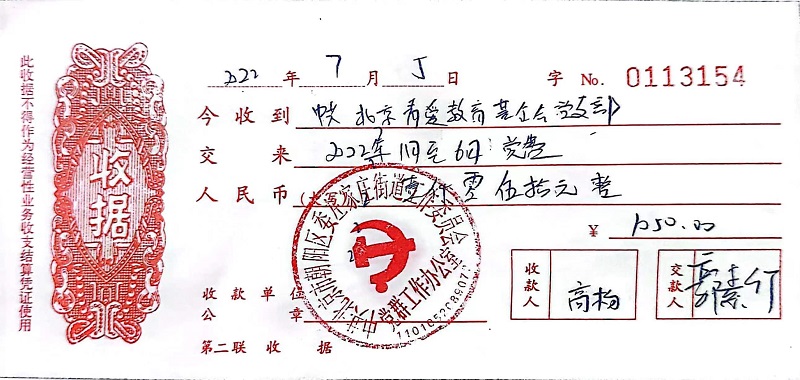 此收据不得作为经营性业务收支结算凭证使用
收据
2022 年 7 月 5 日 字 No. 0113154
今收到 北京 爱教育基金会党支部
交来 2022年1月至6月党费
人民币 壹仟零伍拾元整
¥ 1050.00
收款单位
公章
收款人 高
交款人
第二联 收据
中共北京市朝阳区委 家庄街道工作委员会
党群工作办公室